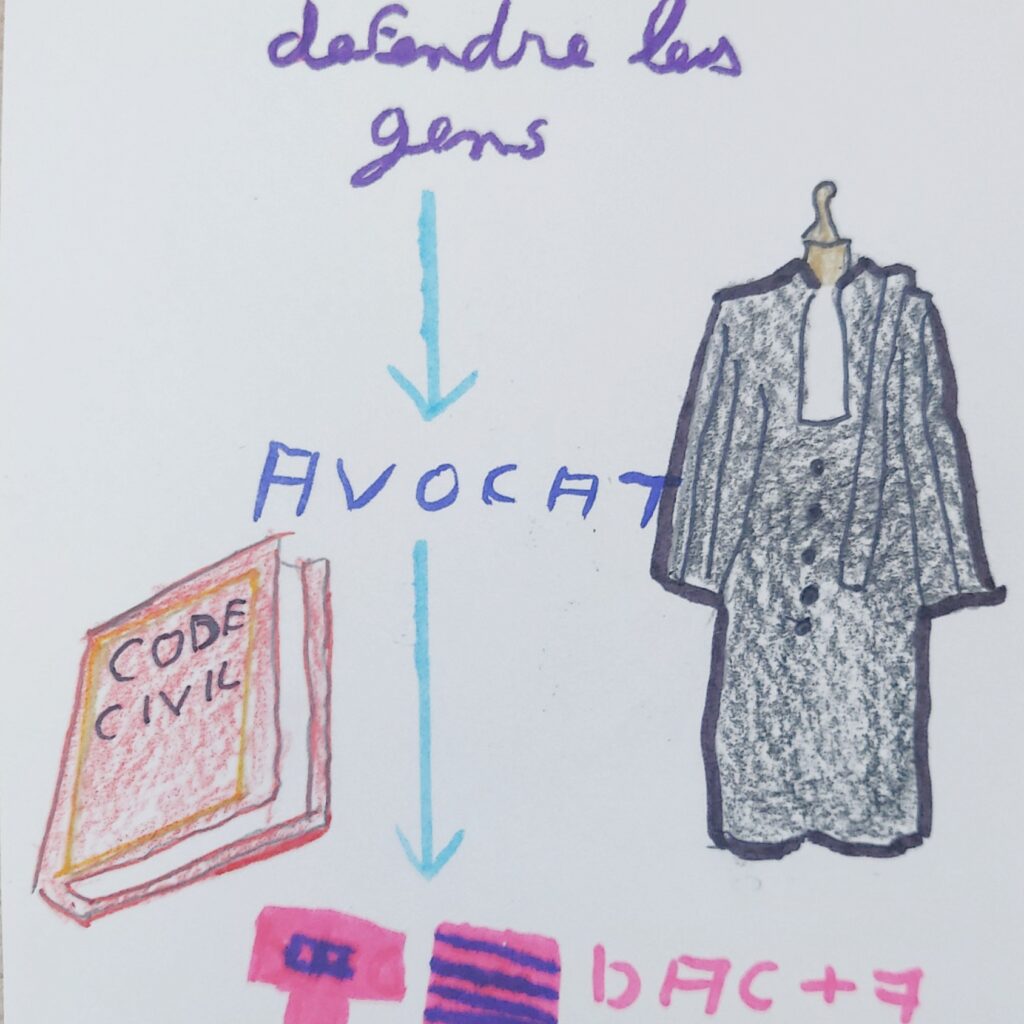 defendre les
gens
AVOCAT
CODE
CIVIL
BAC+7